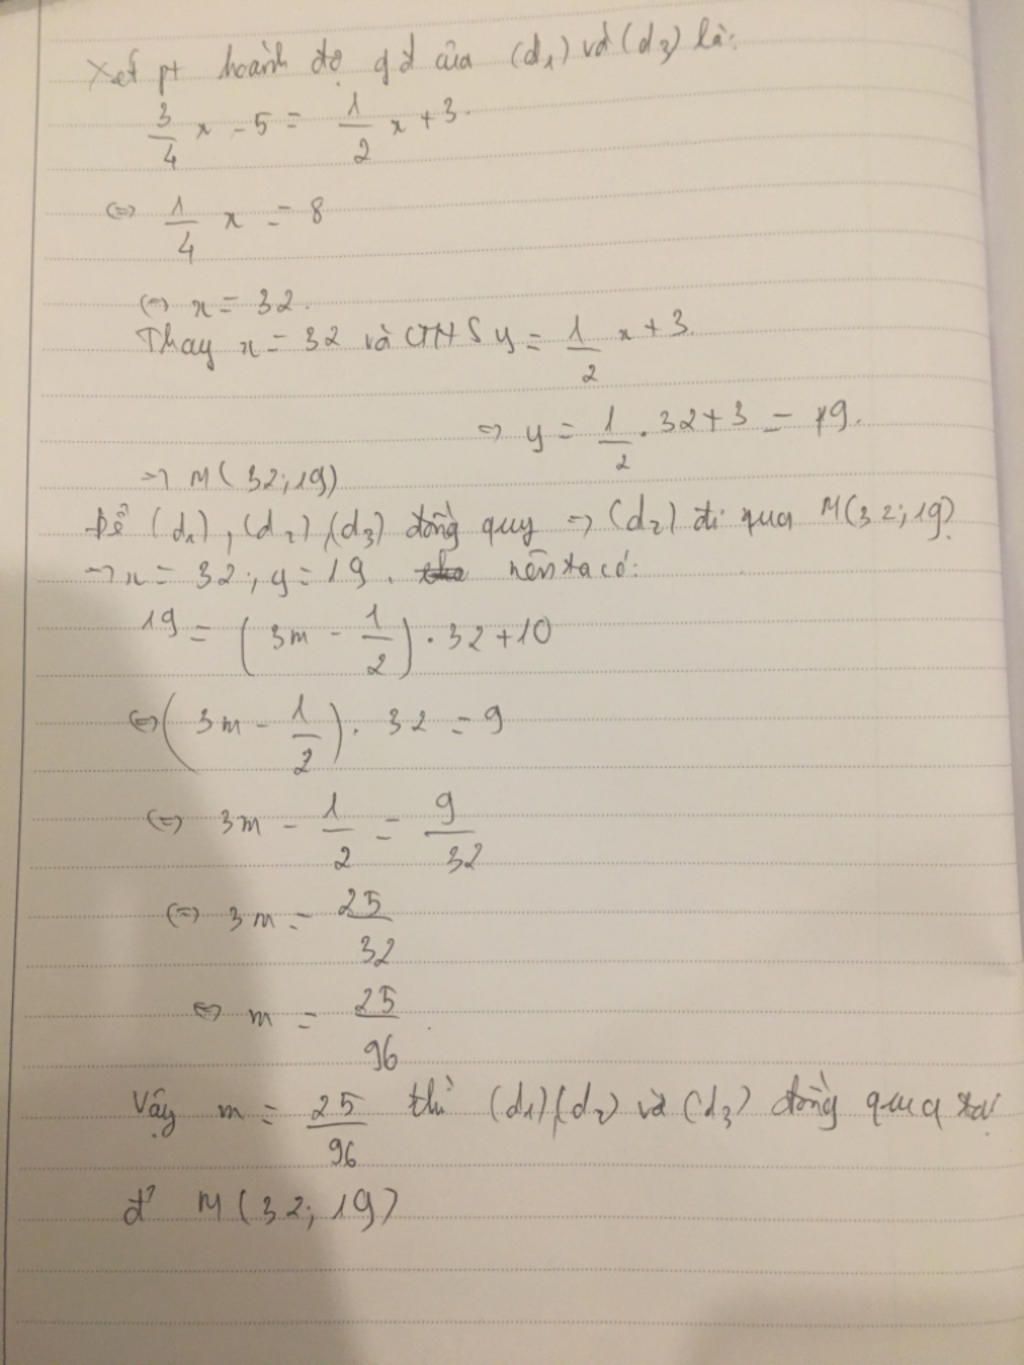 Xét pt hoành độ gđ của (d₁) và (d₃) là:
3/4 x - 5 = 1/2 x + 3.
⇔ 1/4 x = 8
⇔ x = 32.
Thay x = 32 và CTHS y = 1/2 x + 3.
⇒ y = 1/2 . 32 + 3 = 19.
⇒ M(32; 19)
Để (d₁), (d₂), (d₃) đồng quy ⇒ (d₂) đi qua M(32; 19)
→ x = 32; y = 19. nên ta có:
19 = (3m - 1/2) . 32 + 10
⇔ (3m - 1/2) . 32 = 9
⇔ 3m - 1/2 = 9/32
⇔ 3m = 25/32
⇔ m = 25/96
Vậy m = 25/96 thì (d₁), (d₂) và (d₃) đồng qua tại
đ' M(32; 19)